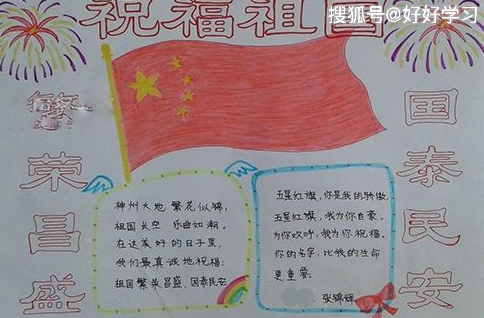 搜狐号@好好学习
祝福祖国
繁荣昌盛
国泰民安
神州大地 繁花似锦,
祖国长空 乐曲如潮。
在这美好的日子里,
我们最真诚地祝福:
祖国繁荣昌盛、国泰民安
五星红旗,你是我的骄傲,
五星红旗,我为你自豪。
为你欢呼,我为你祝福。
你的名字,比我的生命
更重要。
张锦辉